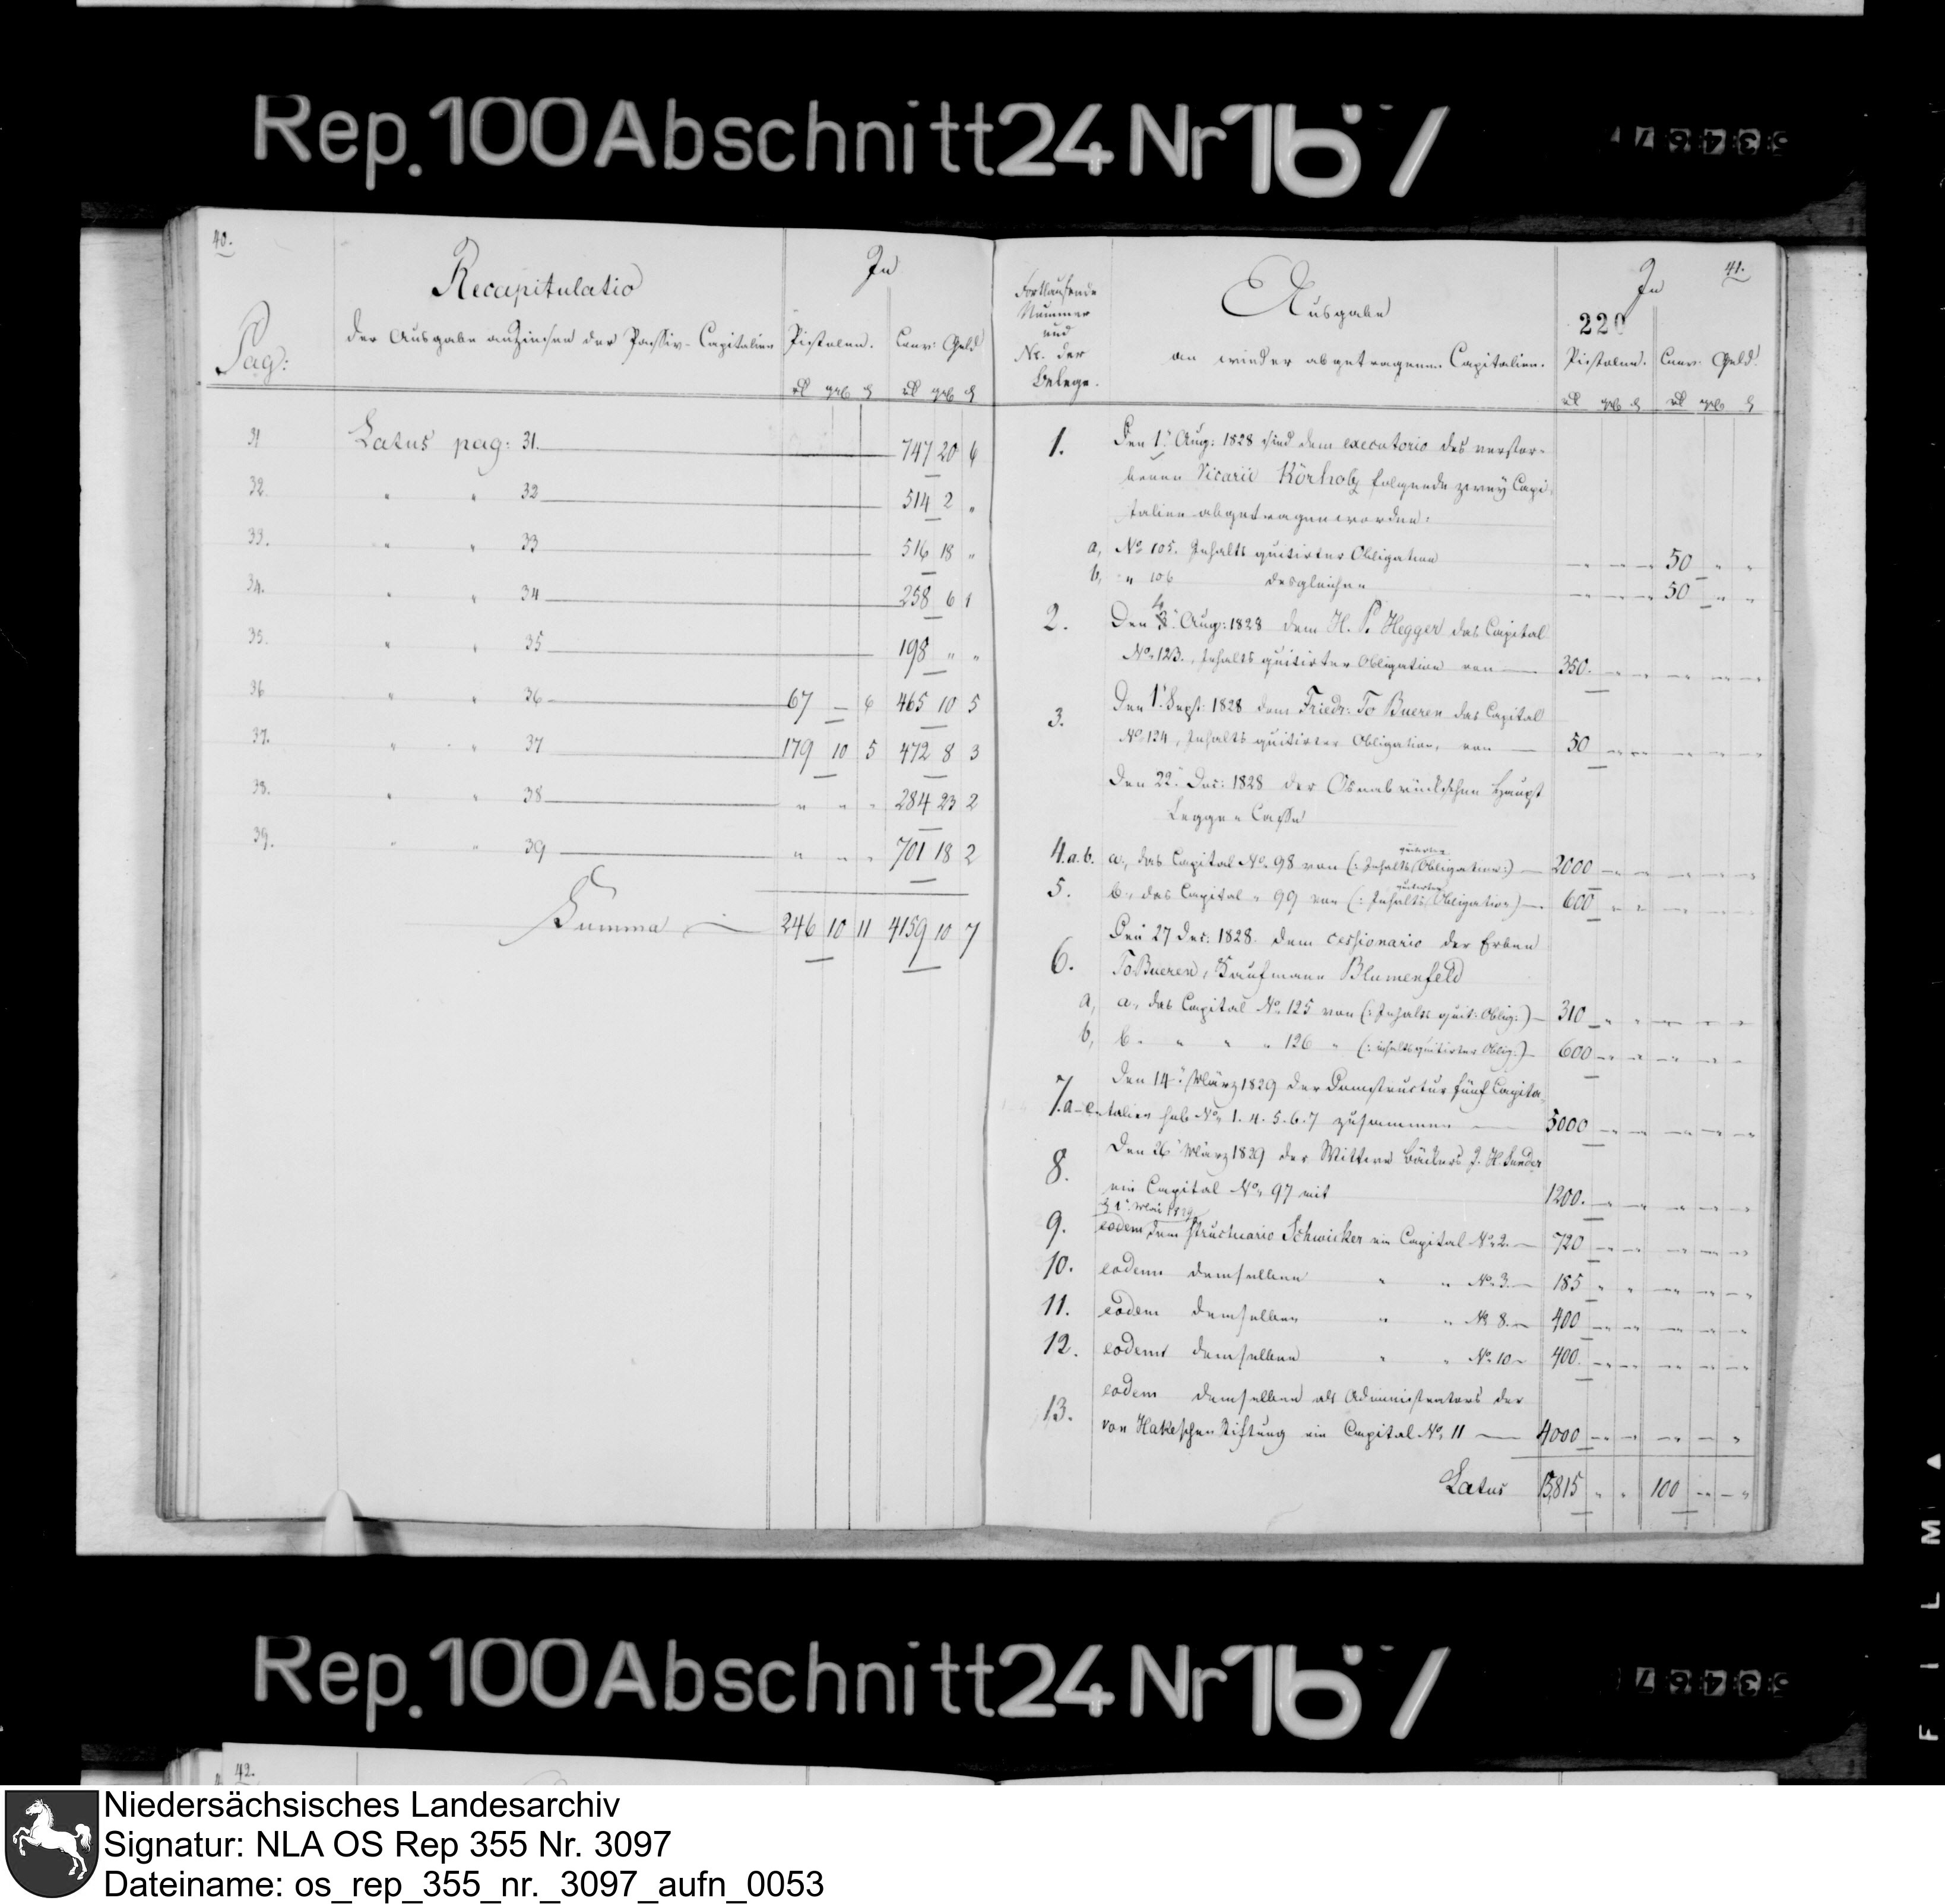 Rep. 100 Abschnitt 24 Nr 167
53467
40.
Recapitulatio
In
Pag:
der Ausgabe an Zinsen der Passiv-Capitalien
Pistolen. Conv: Geld
rtl ggr d rtl ggr d
31 Latus pag: 31. 747 20 6
32. " " 32 514 2 "
33. " " 33 516 18 "
34. " " 34 258 6 1
35. " " 35 198 " "
36 " " 36 67 — 6 465 10 5
37. " " 37 179 10 5 472 8 3
38. " " 38 " " " 284 23 2
39. " " 39 " " " 701 18 2
Summa 246 10 11 4159 10 7
41.
Fortlaufende
Nummer
und
Nr. der
Belege.
Ausgabe
an wieder abgetragenen Capitalien.
In
220
Pistolen. Conv: Geld.
rtl ggr d rtl ggr d
1. Den 1t Aug: 1828 sind dem executorio des verstor-
benen Vicarii Körholz folgende zwey Capi-
talien abgetragen worden:
a, No 105. Inhalts quitirter Obligation " " " 50 " "
b, " 106 desgleichen " " " 50 " "
2. Den Aug: 1828 dem H. P. Hegger das Capital
No 123., Inhalts quitirter Obligation von 350. " " " " "
3. Den 1t Sept: 1828 dem Friedr: To Bueren das Capital
No 124, Inhalts quitirter Obligation, von 50 " " " " "
Den 22t Dec: 1828 der Osnabrückschen Haupt
Legge Casse
quitirter
4. a. b. a, das Capital No 98 von (: Inhalts Obligation:) 2000 " " " " "
quitirter
5. b, das Capital " 99 von (: Inhalts Obligation) 600 " " " " "
Den 27 Dec: 1828. dem cessionario der Erben
6. To Bueren, Kaufmann Blumenfeld
a, a, das Capital No 125 von (: Inhalts quit: Oblig:) 310 " " " " "
b, b. " " " 126 " (: inhalts quitirter Oblig:) 600 " " " " "
Den 14t März 1829 der Domstructur fünf Capita-
7. a-e. talien sub No 1. 4. 5. 6. 7 zusammen 5000 " " " " "
Den 26t März 1829 der Wittwe Bäckers J. H. Sander
8. ein Capital No 97 mit 1200. " " " " "
d 1t Mai 1829
9. eodem dem structuario Schwicker ein Capital No 2. 720 " " " " "
10. eodem demselben " " No 3. 185 " " " " "
11. eodem demselben " " No 8. 400 " " " " "
12. eodem demselben " " No 10 400. " " " " "
eodem demselben als Administrators der
13. von Hakeschen Stiftung ein Capital No 11 4000 " " " " "
Latus 15,815 " " 100 " "
Rep. 100 Abschnitt 24 Nr 167
53467
FILM
42.
Niedersächsisches Landesarchiv
Signatur: NLA OS Rep 355 Nr. 3097
Dateiname: os_rep_355_nr._3097_aufn_0053